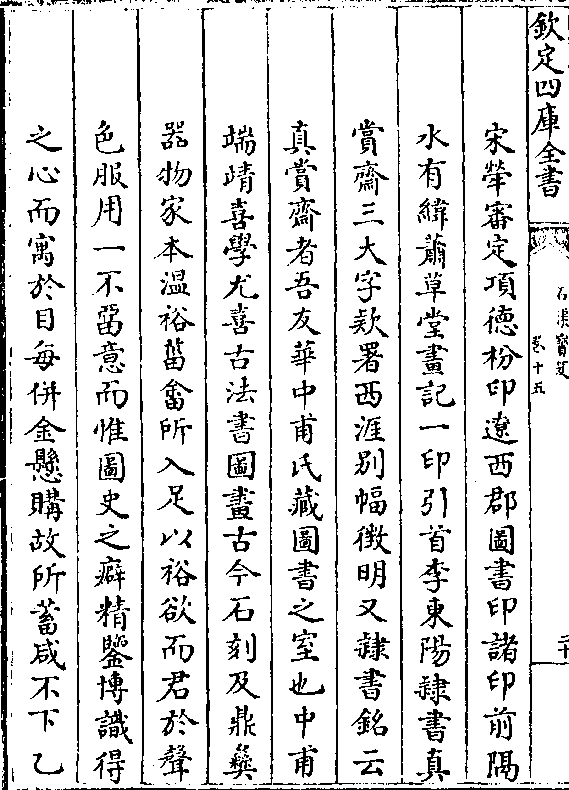 欽定四庫全書
石渠寶笈
卷十五
二十
宋犖審定項德枌印遼西郡圖書印諸印前隔
水有緯蕭草堂畫記一印引首李東陽隸書真
賞齋三大字欵署西涯别幅徴明又隸書銘云
真賞齋者吾友華中甫氏藏圖書之室也中甫
端靖喜學尤喜古法書圖畫古今石刻及鼎彝
器物家本温裕菑畬所入足以裕欲而君於聲
色服用一不畱意而惟圖史之癖精鑒博識得
之心而寓於目每併金懸購故所蓄咸不下乙